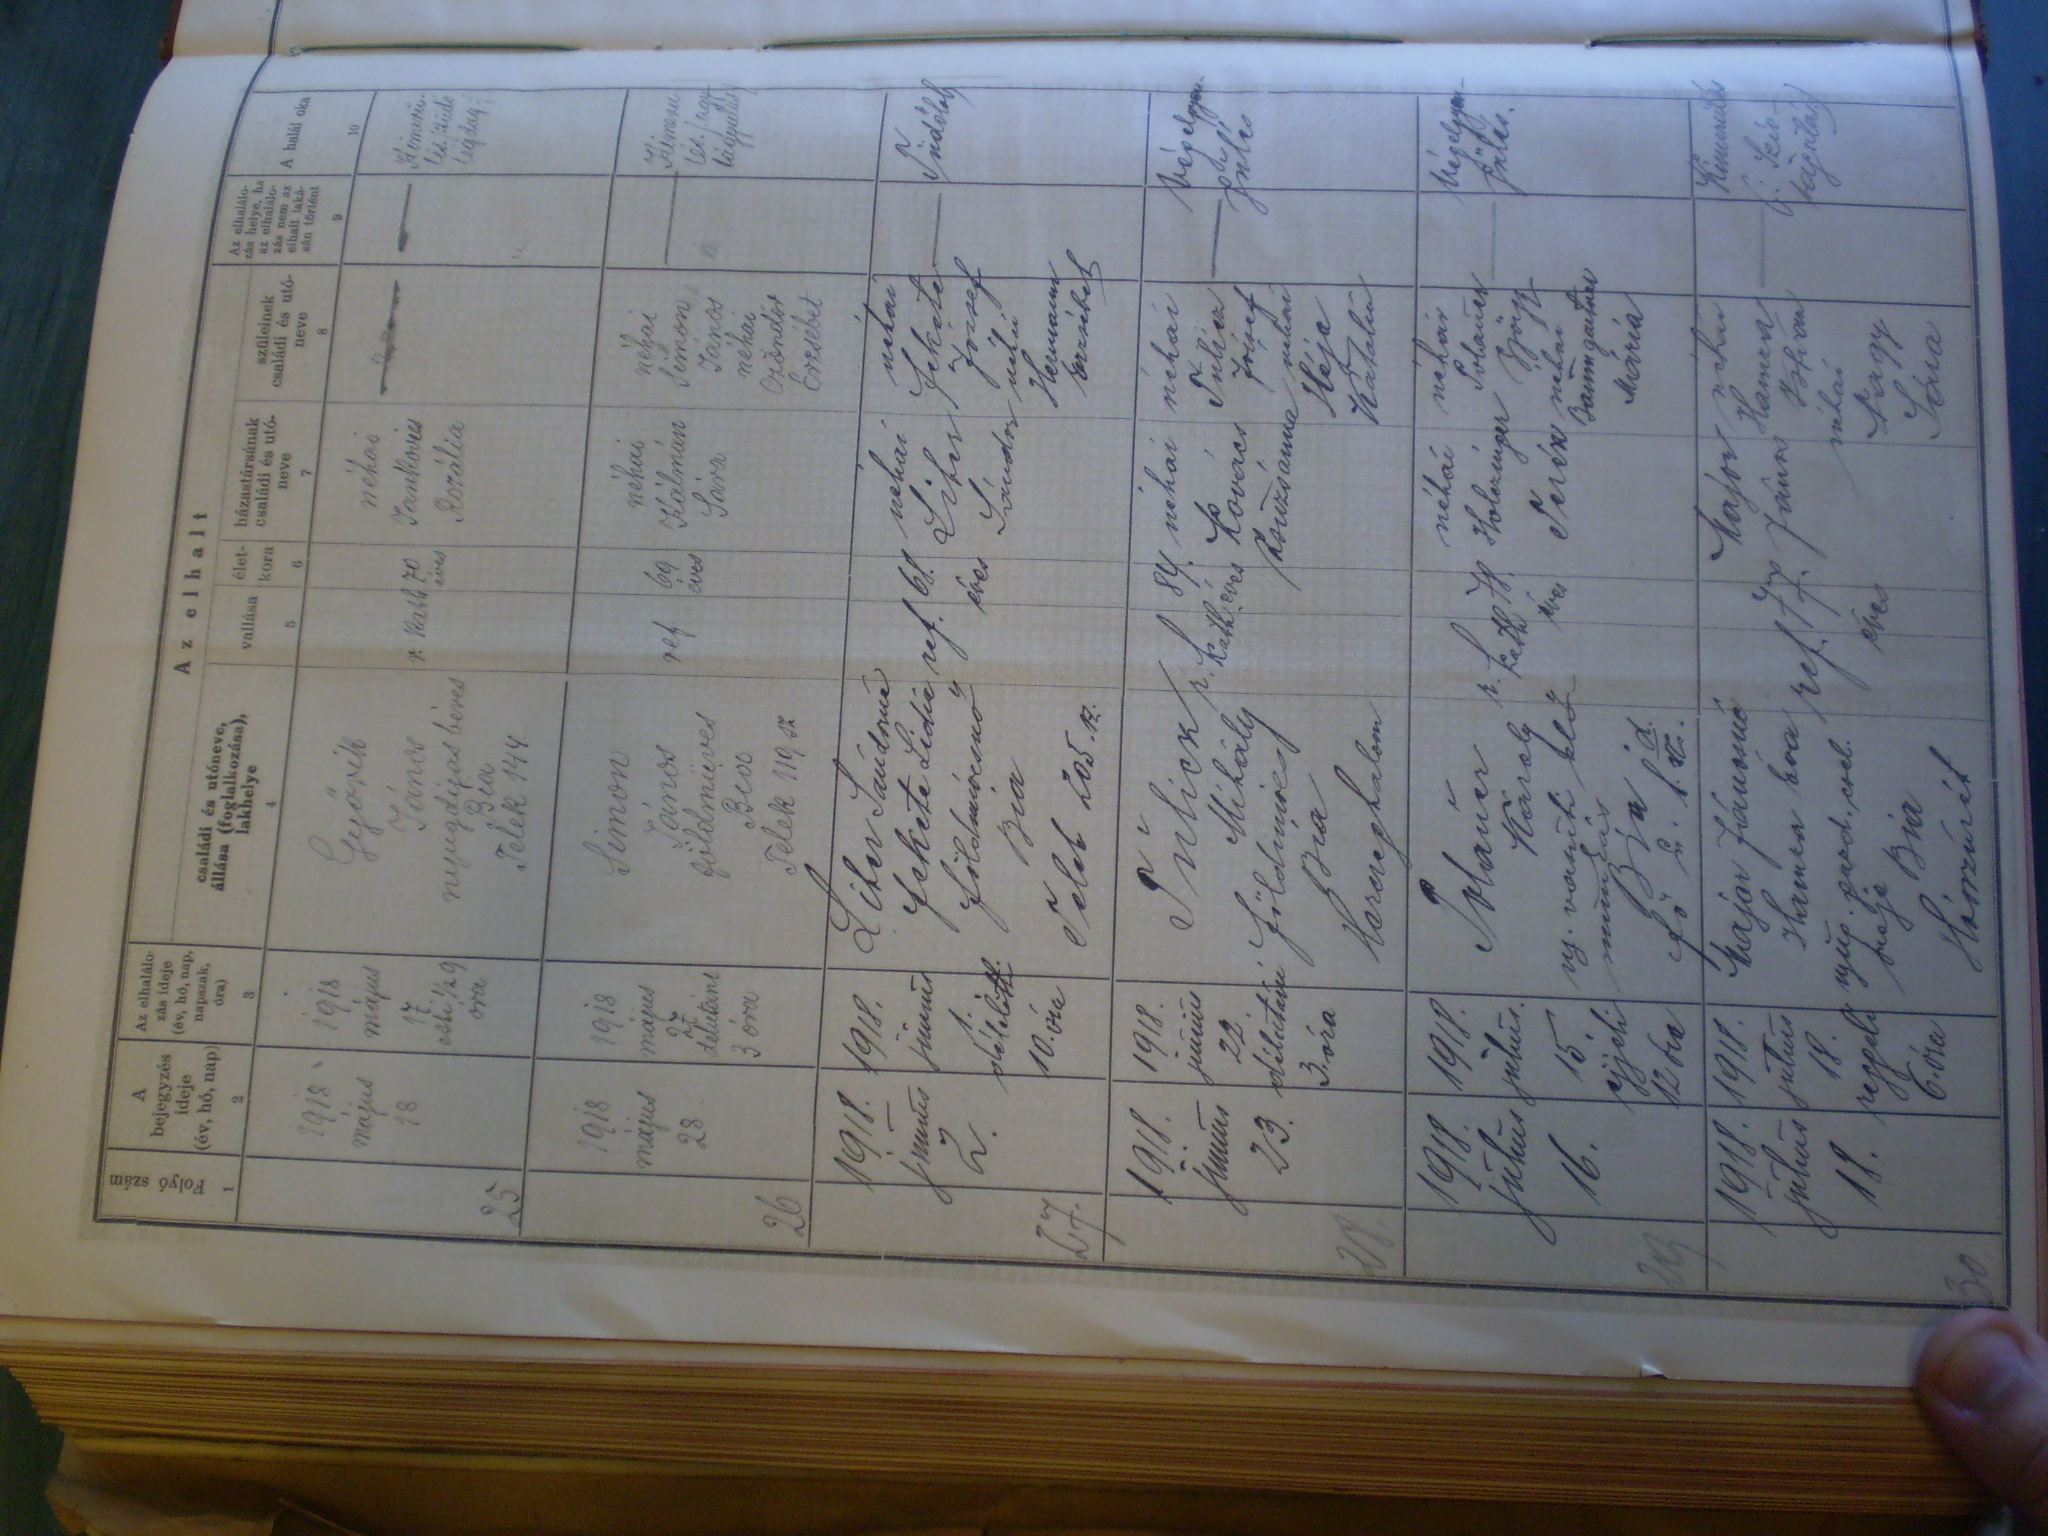 Az elhalt
Folyó szám
A bejegyzés ideje (év, hó, nap)
Az elhalálo-
zás ideje
(év, hó, nap,
napszak,
óra)
családi és utóneve,
állása (foglalkozása),
lakhelye
vallása
élet-
kora
házastársának
családi és utó-
neve
szüleinek
családi és utó-
neve
Az elhalálo-
zás helye, ha
az elhalálo-
zás nem az
elhalt laká-
sán történt
A halál oka
1
2
3
4
5
6
7
8
9
10
25
1918
május
18
1918
május
17
esti 1/2 9
óra
Győrik
János
nyugdijas béres
Bia
Telek 144
r. kath
70
éves
néhai
Jankovics
Rozália
légdag
26
1918
május
28
1918
május
27
délutáni
3 óra
Simon
János
földmüves
Bia
Telek 119 sz
ref
69
éves
néhai
Kálmán
Sára
néhai
Simon
János
néhai
Erzsébet
27.
1918.
június
2.
1918.
június
1.
délelőtt
10. óra
Liber Sándorné
Fekete Lidia
Bia
Telek 205. sz.
ref.
68.
éves
néhai
Liber
Sándor
néhai
Fekete
József
néhai
Hermann
Erzsébet
Tüdőlob
28.
1918.
június
23.
1918.
június
22.
délutáni
3. óra
Mihály
földmüves
Bia
Herceghalom
r.
kath.
84.
éves
néhai
Kovács
Zsuzsánna
néhai
József
néhai
Héja
Katalin
Végelgyen-
gülés
29
1918.
július
16.
1918.
július.
15.
éjjeli
12 óra
Károly
Bia
r.
kath
78.
éves
néhai
Holczinger
Teréz
néhai
György
néhai
Baumgartner
Mária
Végelgyen-
gülés.
30
1918.
július
18.
1918.
július
18.
reggeli
6. óra
Major Jánosné
Hamza Éva
Bia
ref.
77
éves
Major
János
néhai
Hamza
István
néhai
Nagy
Sára